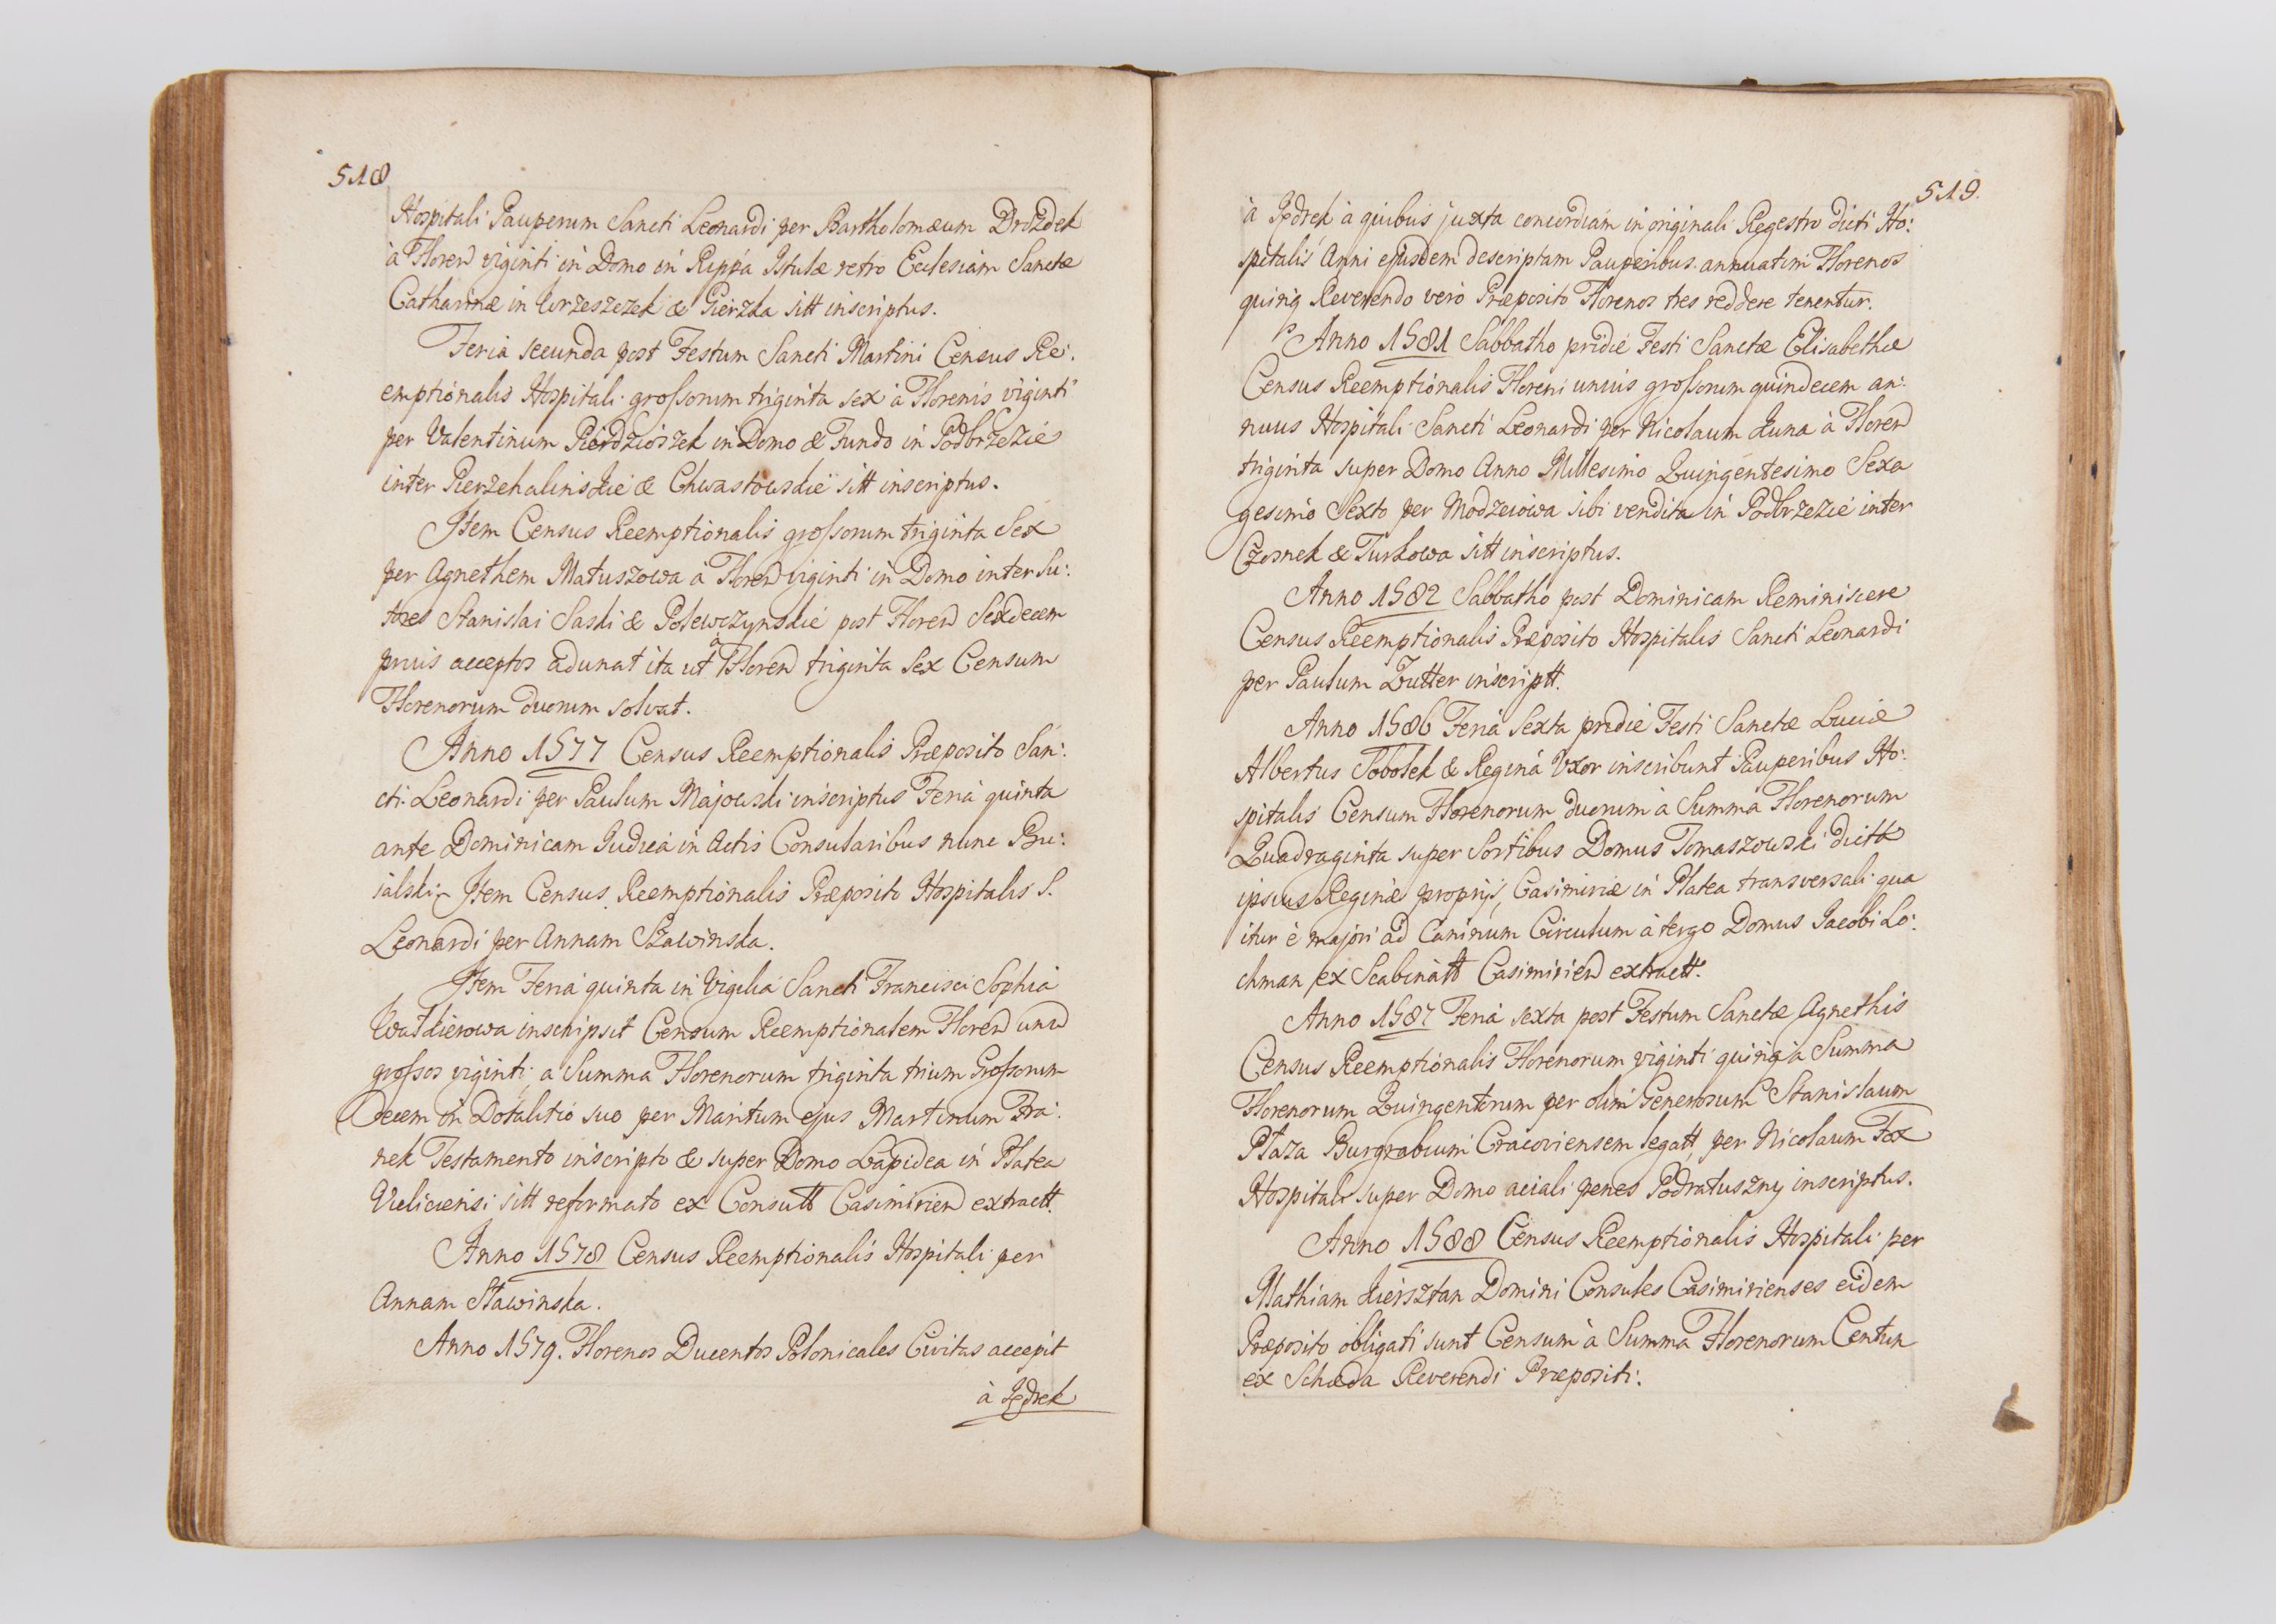 518
Hospitali Pauperum Sancti Leonardi per Bartholomæum Drożdek
à Floren viginti in Domo in Rippa Istulæ retro Ecclesiam Sanctæ
Catharinæ in Wrzeszczek & Gierzka sitt inscriptus.
Feria secunda post Festum Sancti Martini Census Re:
emptionalis Hospitali grossorum triginta sex à Florenis viginti
per Valentinum Pierdzioszek in Domo & Fundo in Podbrzezie
inter Pierzchalinskie & Chwastowskie sitt inscriptus.
Item Census Reemptionalis grossorum triginta Sex
per Agnethem Matuszowa à Floren viginti in Domo inter Su:
tores Stanislai Saski & Polewczynskie post Floren Sexdecem
prius acceptos adunat ita ut à Floren triginta Sex Censum
Florenorum duorum solvat.
Anno 1577 Census Reemptionalis Præposito San:
cti Leonardi per Paulum Majowski inscriptus Feria quinta
ante Dominicam Judica in Actis Consularibus nunc Bu:
ialski Item Census Reemptionalis Præposito Hospitalis S.
Leonardi per Annam Szawinska.
Item Feria quinta in Vigilia Sancti Francisci Sophia
Watdierowa inscripsit Censum Reemptionalem Floren unu
grossos viginti, a Summa Florenorum triginta trium Grossorum
decem in Dotalitio suo per Maritum ejus Martinum Fra:
nek Testamento inscripto & super Domo Lapidea in Platea
Vieliciensi sitt reformato ex Consultt Casimirien extractt.
Anno 1578 Census Reemptionalis Hospitali per
Annam Stawinska.
Anno 1579. Florenos Ducentos Polonicales Civitas accepit
à Jędrek
519.
à Jędrek à quibus juxta concordiam in originali Regestro dicti Ho:
spitalis Anni ejusdem descriptam Pauperibus annuatim Florenos
quinq Reverendo vero Præposito Florenos tres reddere tenentur.
Anno 1581 Sabbatho pridie Festi Sanctæ Elisabethæ
Census Reemptionalis Floreni unius grossorum quindecem an:
nuus Hospitali Sancti Leonardi per Nicolaum Kuna à Floren
triginta super Domo Anno Millesimo Quingentesimo Sexa
gesimo Sexto per Modzeiowa sibi vendita in Podbrzezie inter
Czosnek & Turkowa sitt inscriptus.
Anno 1582 Sabbatho post Dominicam Reminiscere
Census Reemptionalis Præposito Hospitalis Sancti Leonardi
per Paulum Zutter inscriptt.
Anno 1586 Feria Sexta pridie Festi Sanctæ Luciæ
Albertus Sobolek & Regina Uxor inscribunt Pauperibus Ho:
spitalis Censum Florenorum duorum à Summa Florenorum
Quadraginta super Sortibus Domus Tomaszowski dictæ
ipsius Reginæ proprijs, Casimiriæ in Platea transversali qua
itur è majori ad Caninum Circulum à tergo Domus Jacobi Lo:
chman ex Scabinatt Casimirien extractt.
Anno 1587 Feria sexta post Festum Sanctæ Agnethis
Census Reemptionalis Florenorum viginti quinq à Summa
Florenorum Quingentorum per olim Generosum Stanislaum
Płaza Burgrabium Cracoviensem legatt, per Nicolaum Fox
Hospitali super Domo aciali penes Podratuszny inscriptus.
Anno 1588 Census Reemptionalis Hospitali per
Mathiam Kiersztan Domini Consules Casimirienses eidem
Præposito obligati sunt Censum à Summa Florenorum Centum
ex Scheda Reverendi Præpositi.